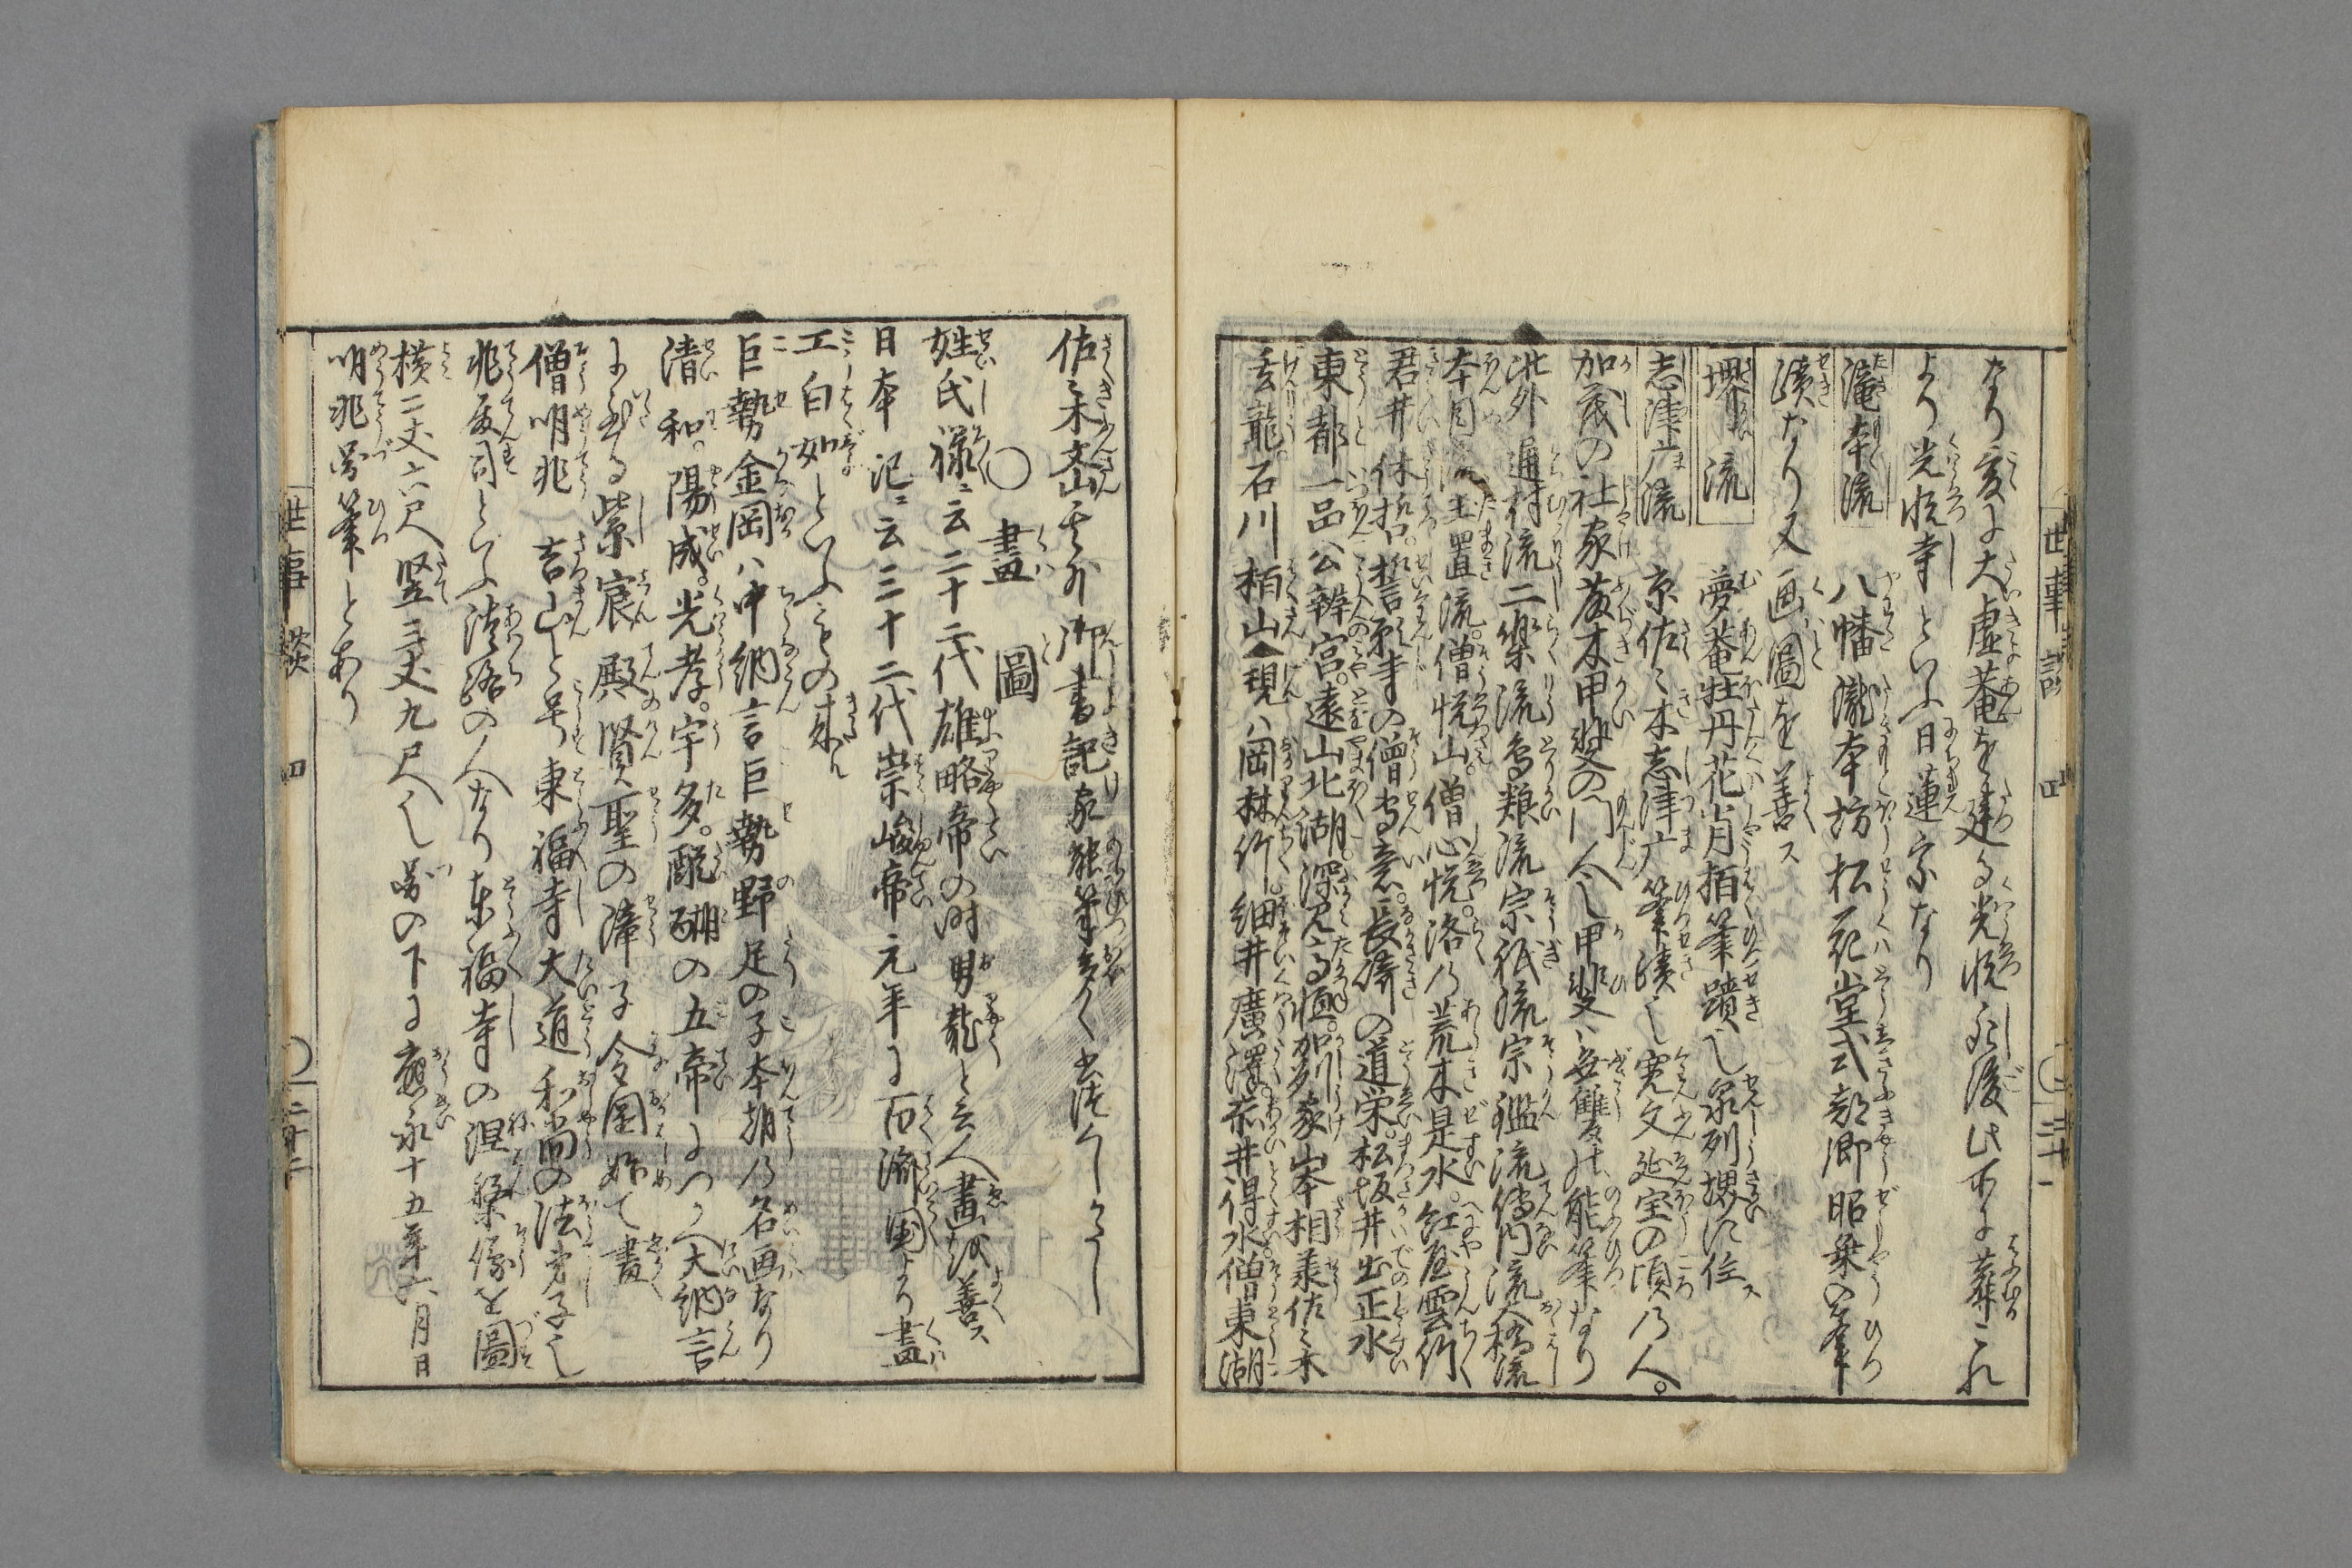 なり爰に大虚菴を建る光悦死後此所に葬これ
より光悦寺といふ日蓮宗なり
滝本流 八幡瀧本坊松花堂式部卿昭乗の筆
蹟なり又画圖を善ス
堺流 夢菴牡丹花肖栢筆蹟也泉州堺に住ス
志津广流 京佐々木志津广筆蹟也寛文延宝の頃乃人。
加茂の社家藤木甲斐の門人也甲斐ハ無雙の能筆なり
此外 通村流二楽流鳥類流宗祇流宗鑑流傳内流大橋流
本目流玉置流。僧悦山。僧心悦。洛乃荒木是水。紅屋雲竹
君井休哲。誓願寺の僧専意。長﨑の道栄。松坂井出正水
東都一品公辨宮。遠山北湖。深見高恒。加刕家山本相業佐々木
玄龍。石川栢山今現ハ岡林竹。細井廣澤。荒井得水僧東湖
世事談 四 ○ 二十一
佐々木文山其外御書記家能筆多く出洋々しかるし
○畫圖
姓氏禄ニ云二十二代雄略帝の時男龍と云人畫を善ス
日本記ニ云三十二代崇峻帝元年に百濟国より畫
工白如といふものの来ル
巨勢金岡ハ中納言巨勢野足の子本朝乃名画なり
清和。陽成。光孝。宇多。醍醐の五帝につかへ大納言
に至る紫宸殿賢聖の障子金岡始て畫
僧明兆 吉山と号東福寺大道和尚の法弟子也
兆殿司といふ淡路の人なり東福寺の涅槃像を圖
横二丈六尺竪三丈九尺也圖の下に應永十五年六月日
明兆圖筆とあり
世事談 四 ○ 二十二